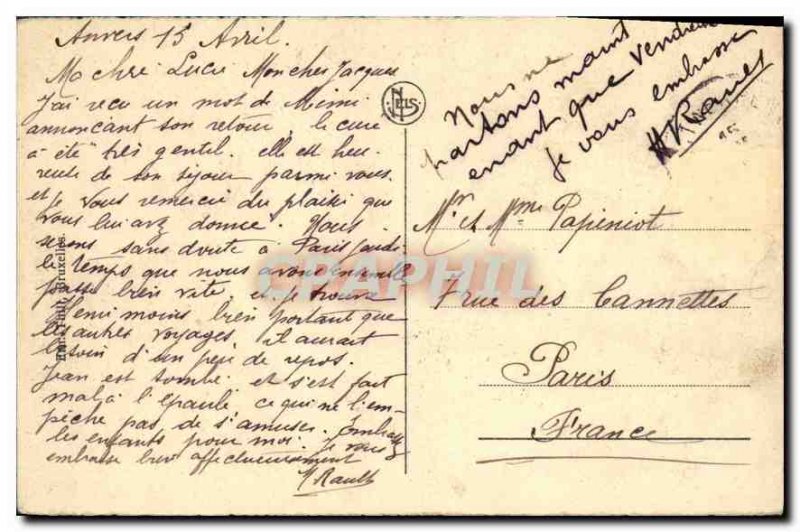 Anvers 15 Avril.
Ma chre Lucie Mon cher Jacques
J'ai reçu un mot de Mimi
annoncant son retour, le cure
a été très gentil. elle est heu-
reuse de son séjour parmi vous.
et je vous remercie du plaisir que
vous lui avez donnée. Nous
serons sans doute à Paris Jeudi
le temps que nous avons ensemble
passe bien vite et je trouve
Remi moins bien portant que
les autres voyages, il aurait
besoin d'un peu de repos.
Jean est tombé et s'est fait
mal à l'épaule ce qui ne l'em-
pêche pas de s'amuser. Embrassez
les enfants pour moi. Je vous
embrasse bien affectueusement
Rault
Nous ne
partons maint
enant que Vendredi
Je vous embrasse
NELS
Mr et Mme Papeniot
7 rue des Cannettes
Paris
France
Bruxelles.
CPAPHIL